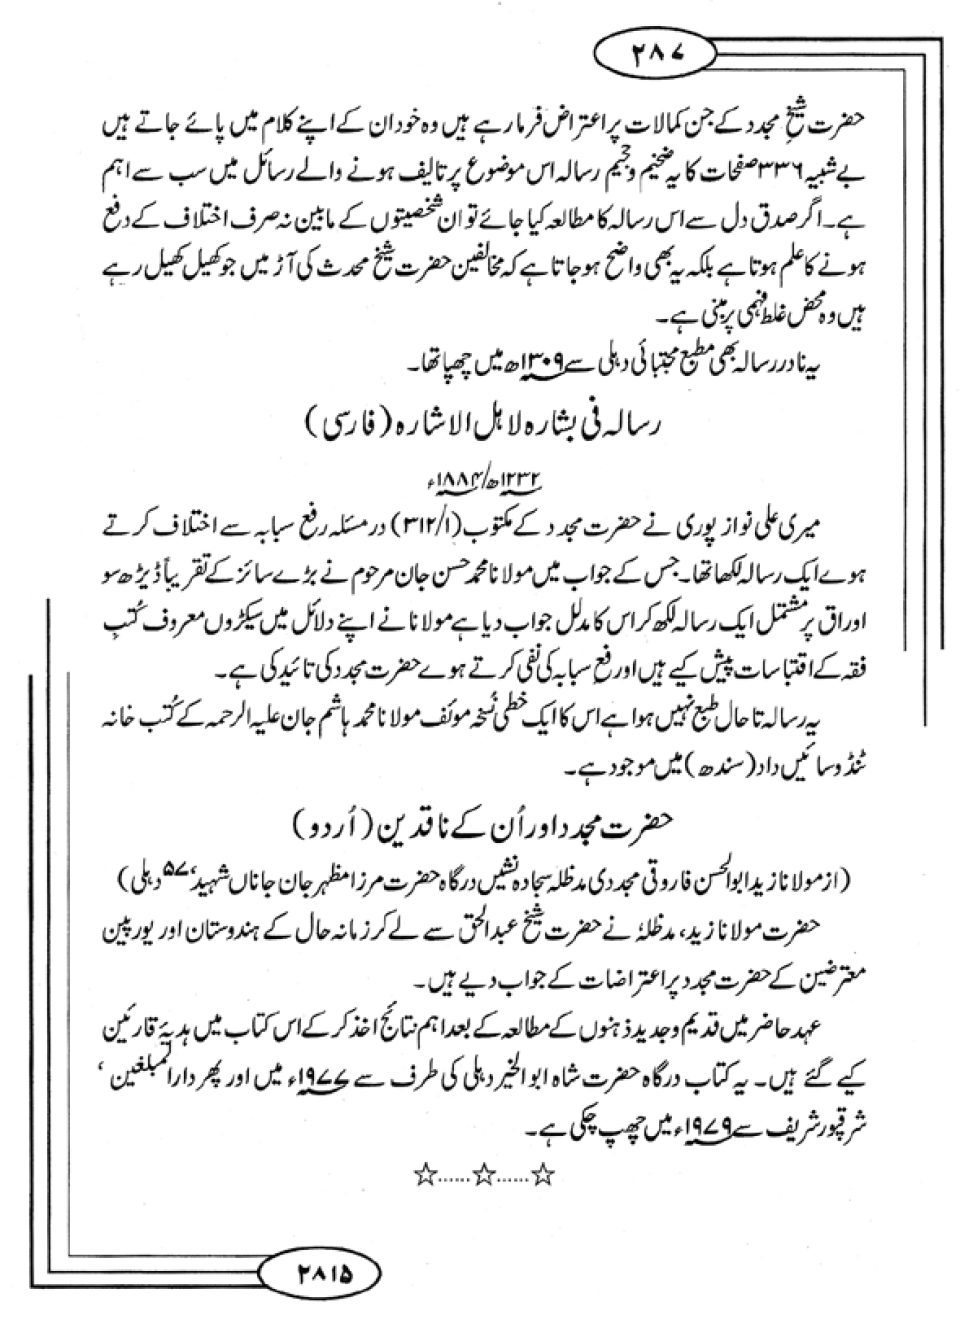 ۲۸۷
حضرت شیخِ مجدد کے جن کمالات پر اعتراض فرما رہے ہیں وہ خود ان کے اپنے کلام میں پائے جاتے ہیں
بے شبہ ۳۳۶ صفحات کا یہ ضخیم وحجیم رسالہ اس موضوع پر تالیف ہونے والے رسائل میں سب سے اہم
ہے۔ اگر صدق دل سے اس رسالہ کا مطالعہ کیا جائے تو ان شخصیتوں کے مابین نہ صرف اختلاف کے دفع
ہونے کا علم ہوتا ہے بلکہ یہ بھی واضح ہو جاتا ہے کہ مخالفین حضرت شیخ محدث کی آڑ میں جو کھیل کھیل رہے
ہیں وہ محض غلط فہمی پر مبنی ہے۔
یہ نادر رسالہ بھی مطبع مجتبائی دہلی سے ۱۳۰۹ھ میں چھپا تھا۔
رسالہ فی بشارہ لاہل الاشارہ (فارسی)
۱۲۳۲ھ/۱۸۸۴ء
میری علی نواز پوری نے حضرت مجدد کے مکتوب (۳۱۲/۱) در مسئلہ رفع سبابہ سے اختلاف کرتے
ہوے ایک رسالہ لکھا تھا۔ جس کے جواب میں مولانا محمد حسن جان مرحوم نے بڑے سائز کے تقریباً ڈیڑھ سو
اوراق پر مشتمل ایک رسالہ لکھ کر اس کا مدلل جواب دیا ہے مولانا نے اپنے دلائل میں سیکڑوں معروف کُتبِ
فقہ کے اقتباسات پیش کیے ہیں اور رفع سبابہ کی نفی کرتے ہوے حضرت مجدد کی تائید کی ہے۔
یہ رسالہ تا حال طبع نہیں ہوا ہے اس کا ایک خطی نُسخہ موئف مولانا محمد ہاشم جان علیہ الرحمہ کے کُتب خانہ
ٹنڈو سائیں داد (سندھ) میں موجود ہے۔
حضرت مجدد اور اُن کے ناقدین (اُردو)
(از مولانا زید ابوالحسن فاروقی مجددی مدظلہ سجادہ نشیں درگاہ حضرت مرزا مظہر جان جاناں شہید، ۵۷ دہلی)
حضرت مولانا زید، مدظلہٗ نے حضرت شیخ عبدالحق سے لے کر زمانہ حال کے ہندوستان اور یورپین
معترضین کے حضرت مجدد پر اعتراضات کے جواب دیے ہیں۔
عہد حاضر میں قدیم و جدید ذہنوں کے مطالعہ کے بعد اہم نتائج اخذ کر کے اس کتاب میں ہدیۂ قارئین
کیے گئے ہیں۔ یہ کتاب درگاہ حضرت شاہ ابوالخیر دہلی کی طرف سے ۱۹۷۷ء میں اور پھر دارالمبلغین،
شرقپور شریف سے ۱۹۷۹ء میں چھپ چکی ہے۔
☆......☆......☆
۲۸۱۵